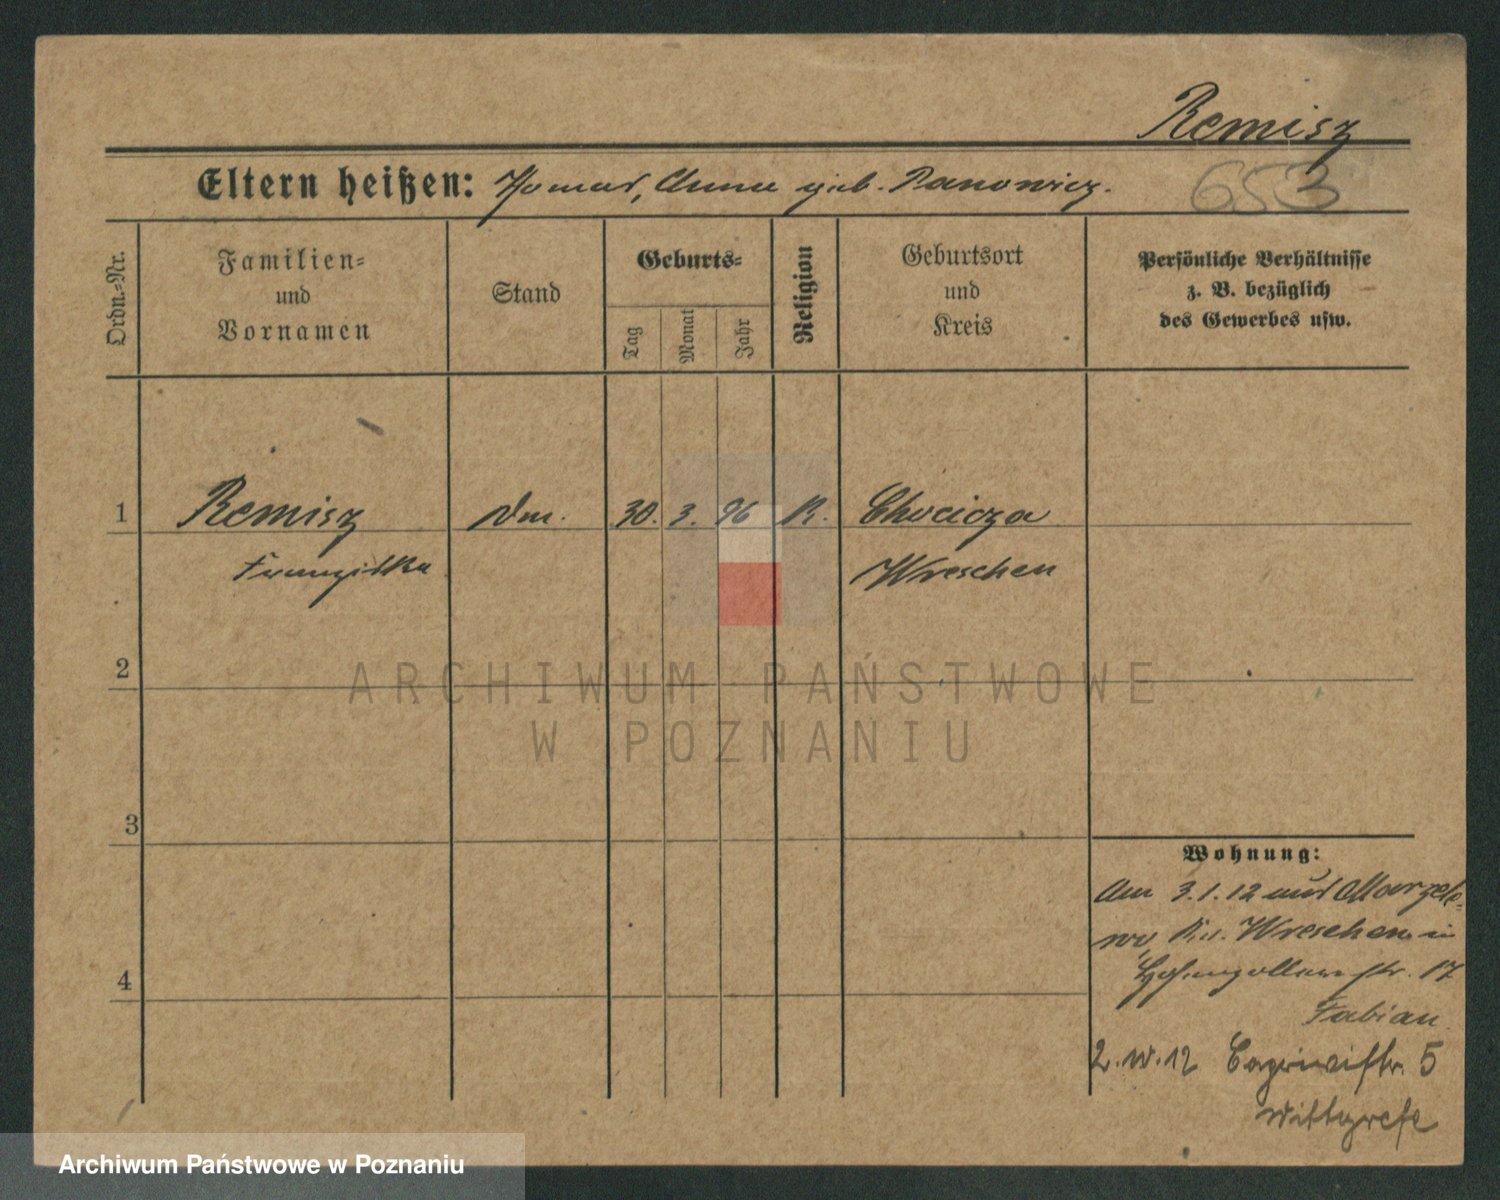 Remisz
Eltern heißen: Tomas, Anna geb. Panowicz.
653
Ordn.=Nr.
Familien=
und
Vornamen
Stand
Geburts=
Tag
Monat
Jahr
Religion
Geburtsort
und
Kreis
Persönliche Verhältnisse
z. B. bezüglich
des Gewerbes usw.
1 Remisz Dm. 30. 3. 96 K. Chocicza
Franziska Wreschen
2
3
4
Wohnung:
Am 3.1.12 aus Marzele=
wo, Kr. Wreschen in
Hohenzollernstr. 17
Fabian
5
Wittgrefe
ARCHIWUM PAŃSTWOWE
W POZNANIU
Archiwum Państwowe w Poznaniu